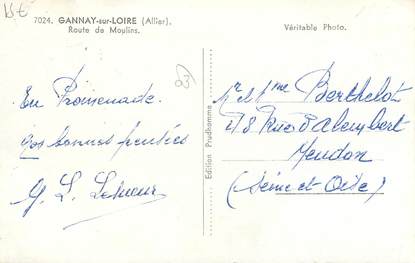 7024. GANNAY-sur-LOIRE (Allier).
Route de Moulins.
Véritable Photo.
En Promenade.
nos bonnes pensées
G. L.
Edition Prudhomme
Mr et Mme Berthelot
18 Rue d'Alembert
Meudon
(Seine et Oise)